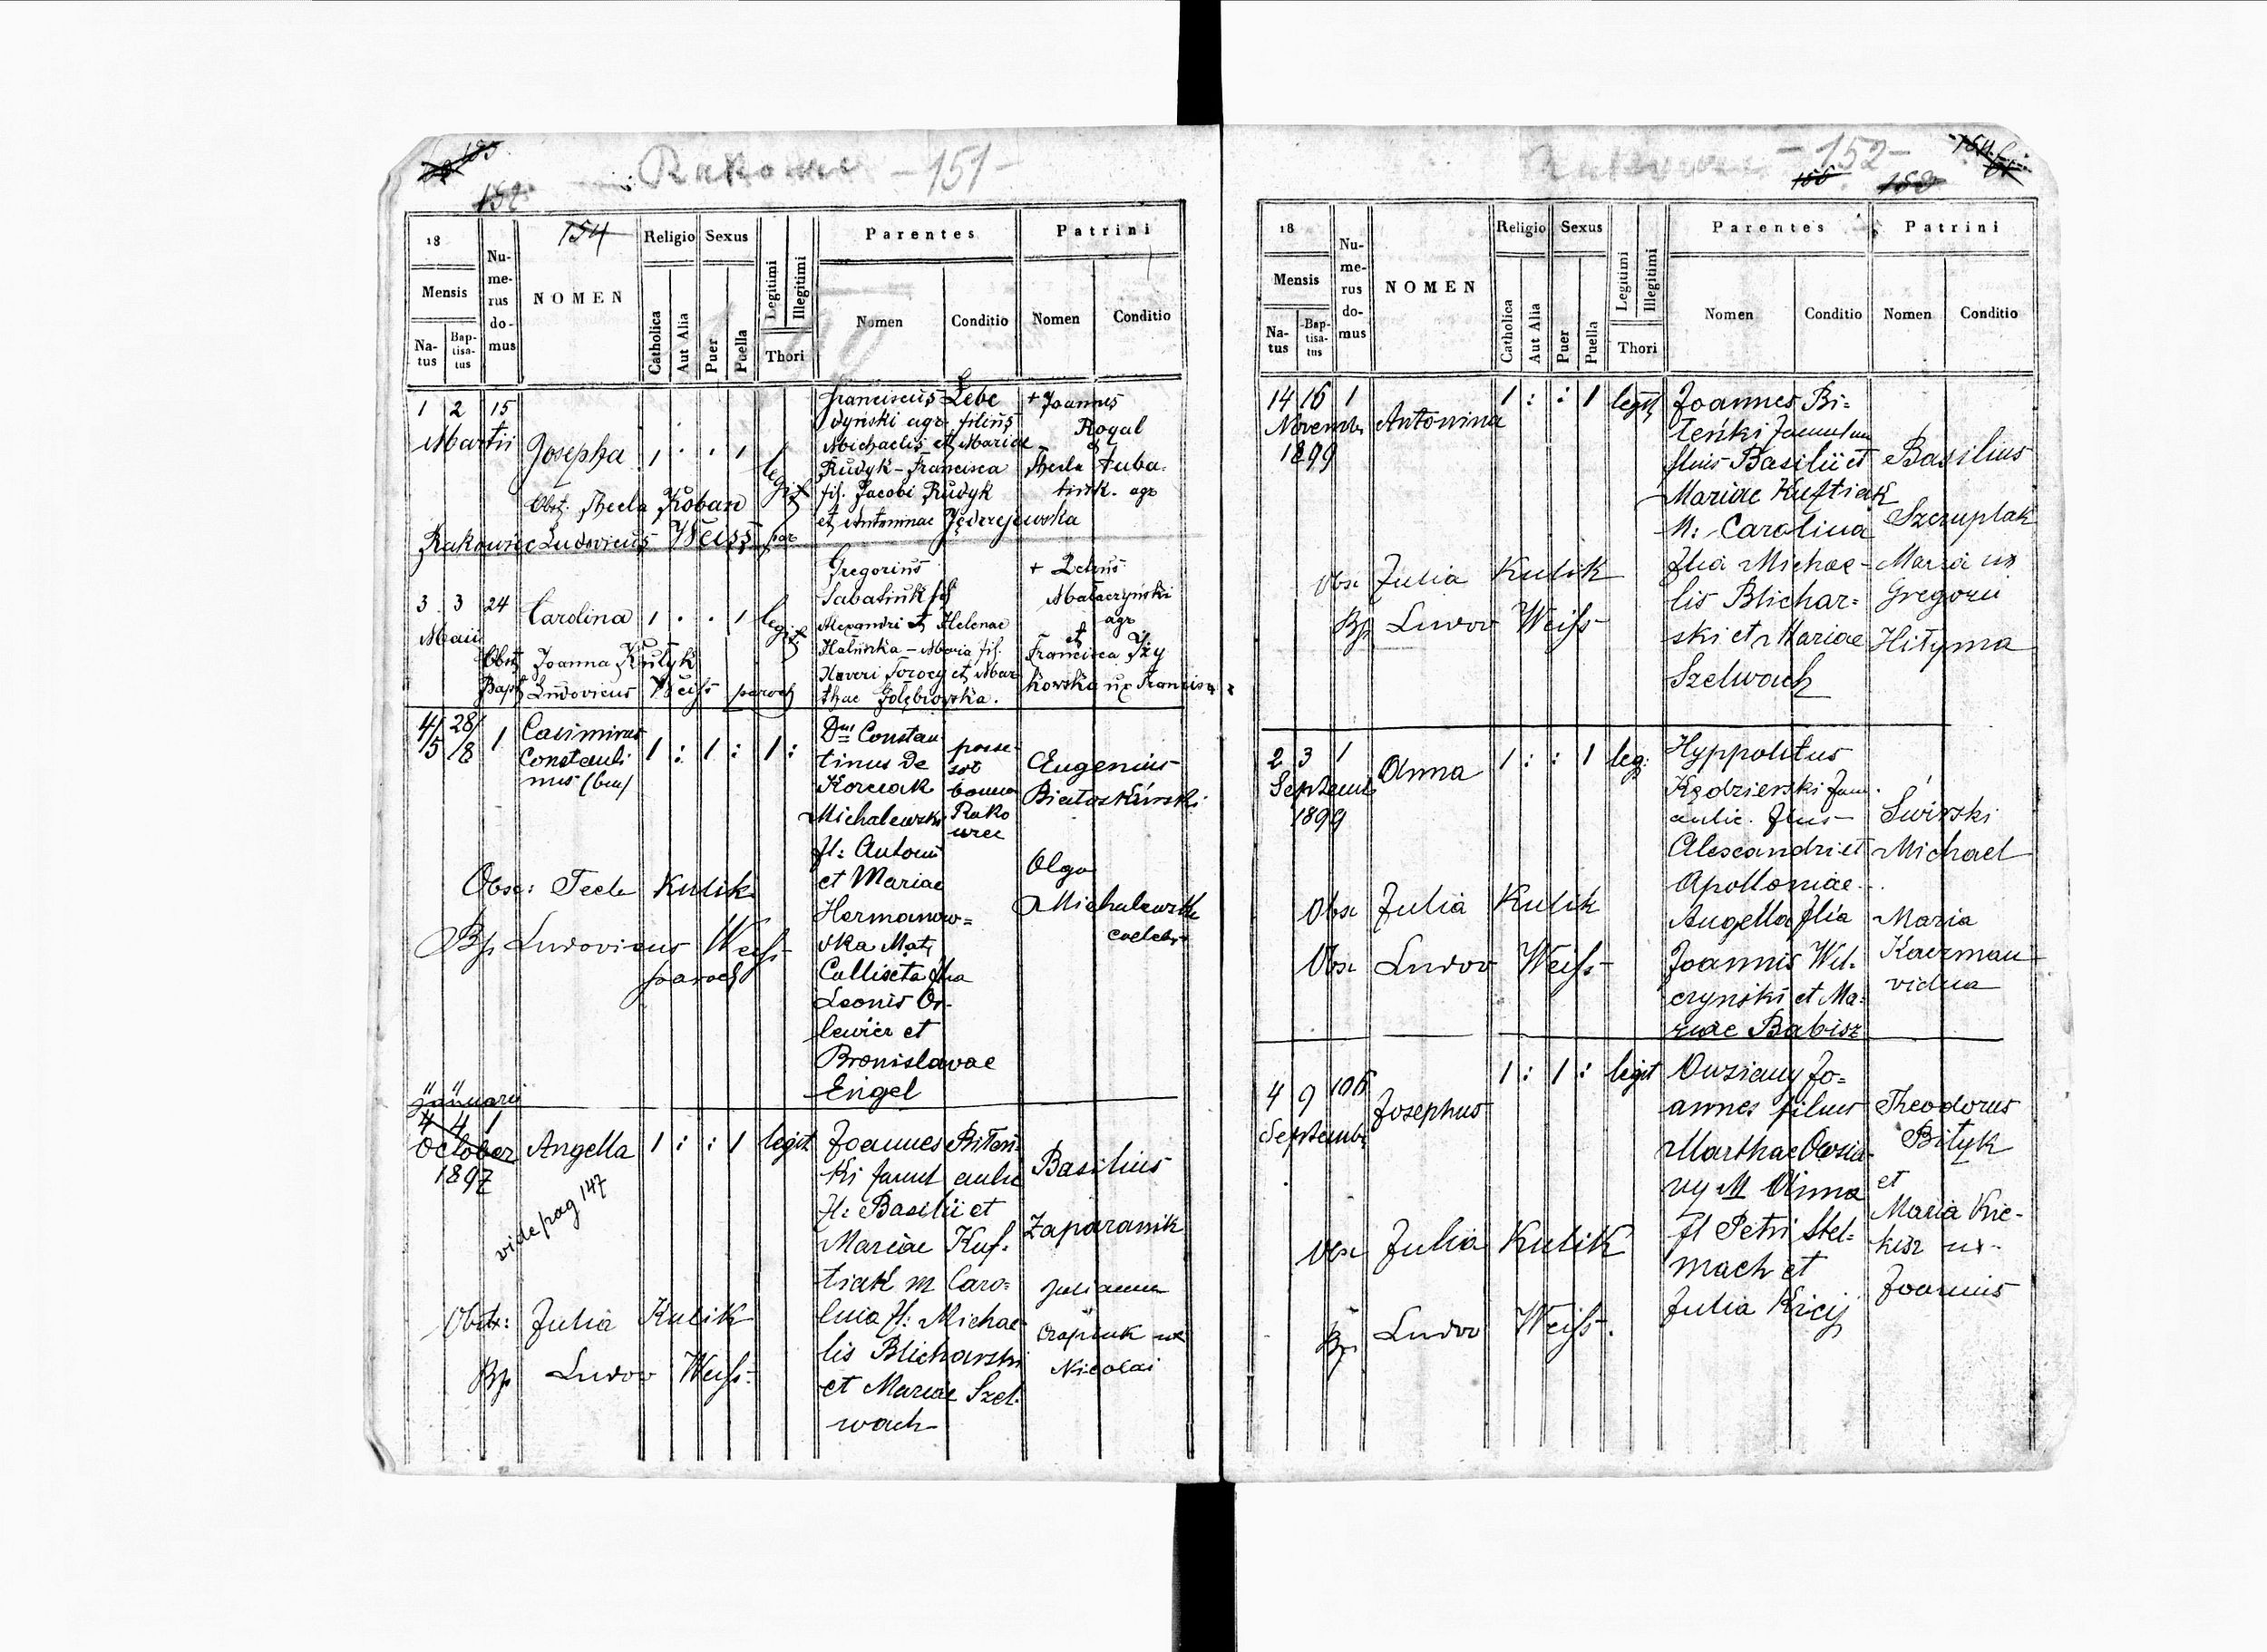 Rakowiec -151-
154
18
Mensis
Natus
Baptisatus
Numerus domus
NOMEN
Religio
Catholica
Aut Alia
Sexus
Puer
Puella
Legitimi
Illegitimi
Thori
Parentes
Nomen
Conditio
Patrini
Nomen
Conditio
1 2 15
Martii
Josepha 1 . . 1 legit
Obst. Thecla Koban
Rakowiec Ludovicus Weiss par
Franciscus Łebe
dyński agr filius
Michaelis et Mariae
Rudyk - Francisca
fil. Jacobi Rudyk
et Antoninae Jędrzejewska
+ Joannes
Rogal
et
Thecla
agr
3 3 24
Maii
Carolina 1 . . 1 legit
Obst Joanna
Bapt Ludovicus Weiss paroch
Gregorius
Sabatiuk fil
Alexandri et Helenae
Halinka - Maria fil.
Xaveri Torocy et Mar
thae Gołębiowska.
+
Małaczyński
agr
et
Francisca Ży
kowska ux Francisci
4/5 28/8 1
Casimirus
Constanti
nus (bin)
1 : 1 : 1 :
Obse: Tecle Kulik
Bp Ludovicus Weiss
paroch
Dnus Constan
tinus de
Korczak
Michalewski
fl: Antoni
et Mariae
Hermanow=
ska Mat
Calliseta flia
Leonis Or-
lewicz et
Bronislavae
Engel
posse
sor
bonor
Rako
wiec
Eugenius
Białoskórski
Olga
Michalewska
caelebs
Januarii
4 4 1
October
1897
Angella 1 : : 1 legit
vide pag 147
Obst: Julia Kulik
Bp Ludov Weiss
Joannes Biteń-
ki famul aulic
fl: Basilii et
Mariae Kuf-
tiak m Caro=
lina fl: Michae
lis Blicharski
et Mariae Szel
wach
Basilius
Zaparanik
Julianna
Czapluk ux
Nicolai
-152-
18
Mensis
Natus
Baptisatus
Numerus domus
NOMEN
Religio
Catholica
Aut Alia
Sexus
Puer
Puella
Legitimi
Illegitimi
Thori
Parentes
Nomen
Conditio
Patrini
Nomen
Conditio
14 16 1
Novembr
1899
Antonina 1 : : 1 legit
Obse Julia Kulik
Bp Ludov Weiss
Joannes Bi=
teńki
flius Basilii et
Mariae Kuftiak
M: Carolina
flia Michae-
lis Blichar=
ski et Mariae
Szelwach
Basilius
Szczuplak
Maria ux
Gregorii
Hityma
2 3 1
Septemb
1899
Anna 1 : : 1 leg:
Obse Julia Kulik
Obse Ludov Weiss
Hyppolitus
Kędzierski fam.
aulic. flius
Alexandri et
Apolloniae
Angella flia
Joannis Wil-
czyński et Ma=
riae Babisz
Świrski
Michael
Maria
Kaerman
vidua
4 9 106
Septembr
Josephus 1 : 1 : legit
Obse Julia Kulik
Bp Ludov Weiss.
Owsiany Jo=
annes filius
Marthae Owsia-
ny M Anna
fl Petri Stel=
mach et
Julia Kricij
Theodorus
Bityk
et
Maria Krie-
kisz ux
Joannis